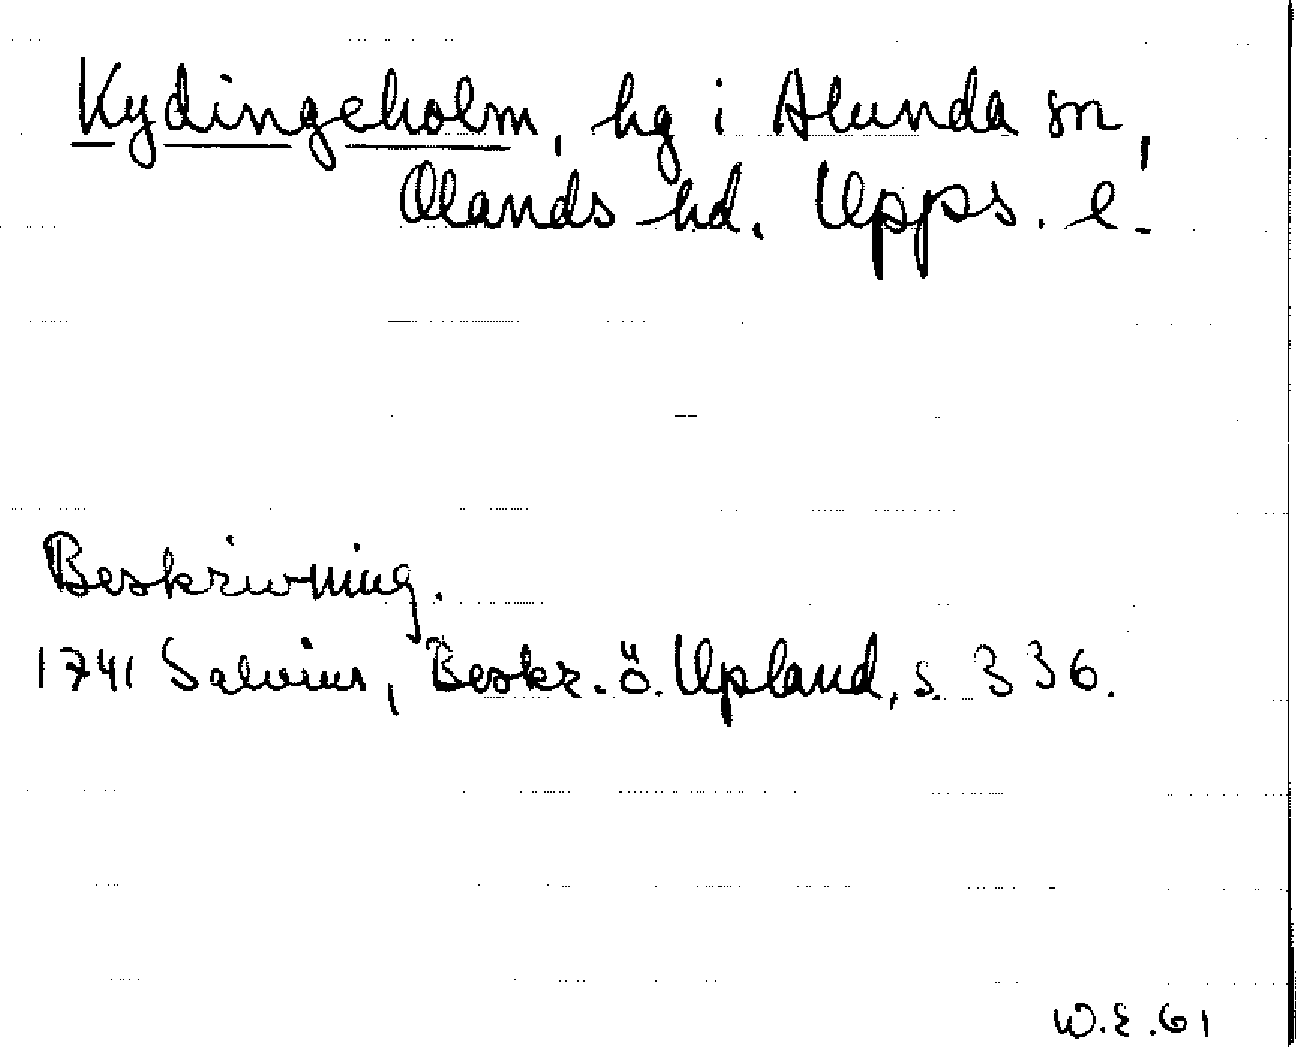 Kydingeholm, hg i Alunda sn,
Olands hd. Upps. l.
Beskrivning.
1741 Salvius, Beskr. ö. Upland, s. 336.
W.E.61